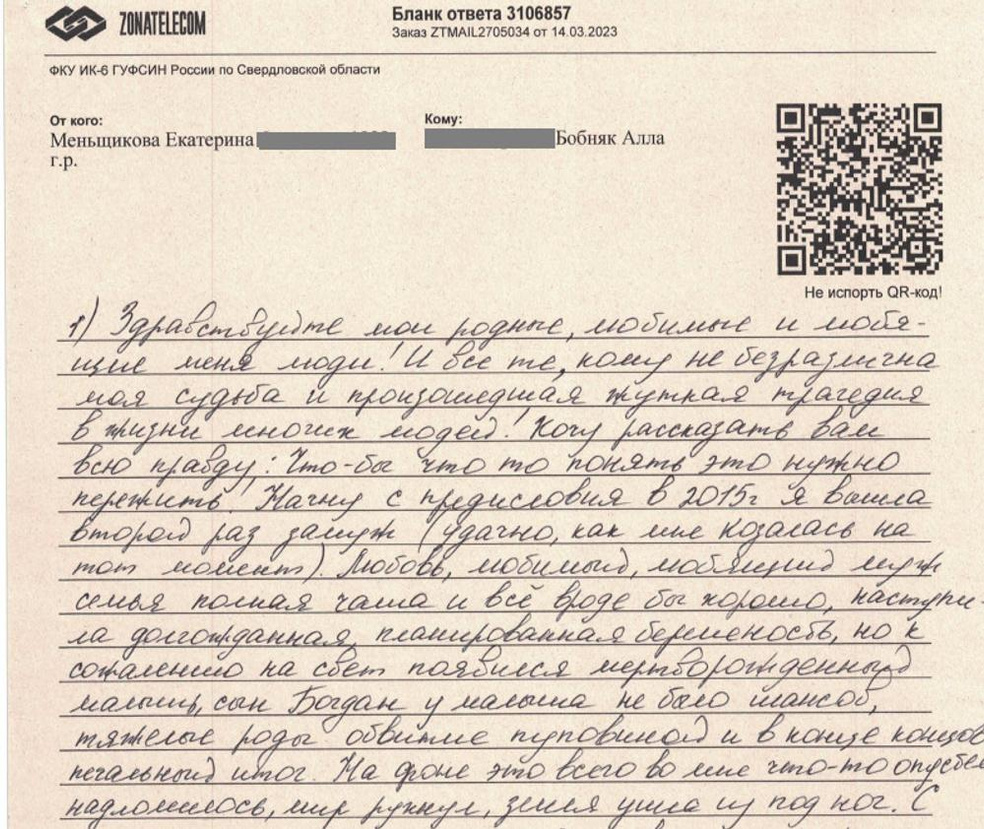 ZONATELECOM
Бланк ответа 3106857
Заказ ZTMAIL2705034 от 14.03.2023
ФКУ ИК-6 ГУФСИН России по Свердловской области
От кого:
Меньщикова Екатерина
г.р.
Кому:
Бобняк Алла
Не испорть QR-код!
1) Здравствуйте мои родные, любимые и любя-
щие меня люди! И все те, кому не безразлична
моя судьба и произошедшая жуткая трагедия
в жизни многих людей! Хочу рассказать вам
всю правду: Что-бы что то понять это нужно
пережить! Начну с предисловия в 2015г я вышла
второй раз замуж (удачно, как мне козалась на
тот момент). Любовь, любимый, любящий муж
семья полная чаша и всё вроде бы хорошо, наступи-
ла долгожданная, планированная беременость, но к
сожалению на свет появился мертворожденный
малыш, сын Богдан у малыша не было шансов,
тяжелые роды обвитие пуповиной и в конце концов
печальный итог. На фоне это всего во мне что-то
надломилось, мир рухнул, земля ушла из под ног. С